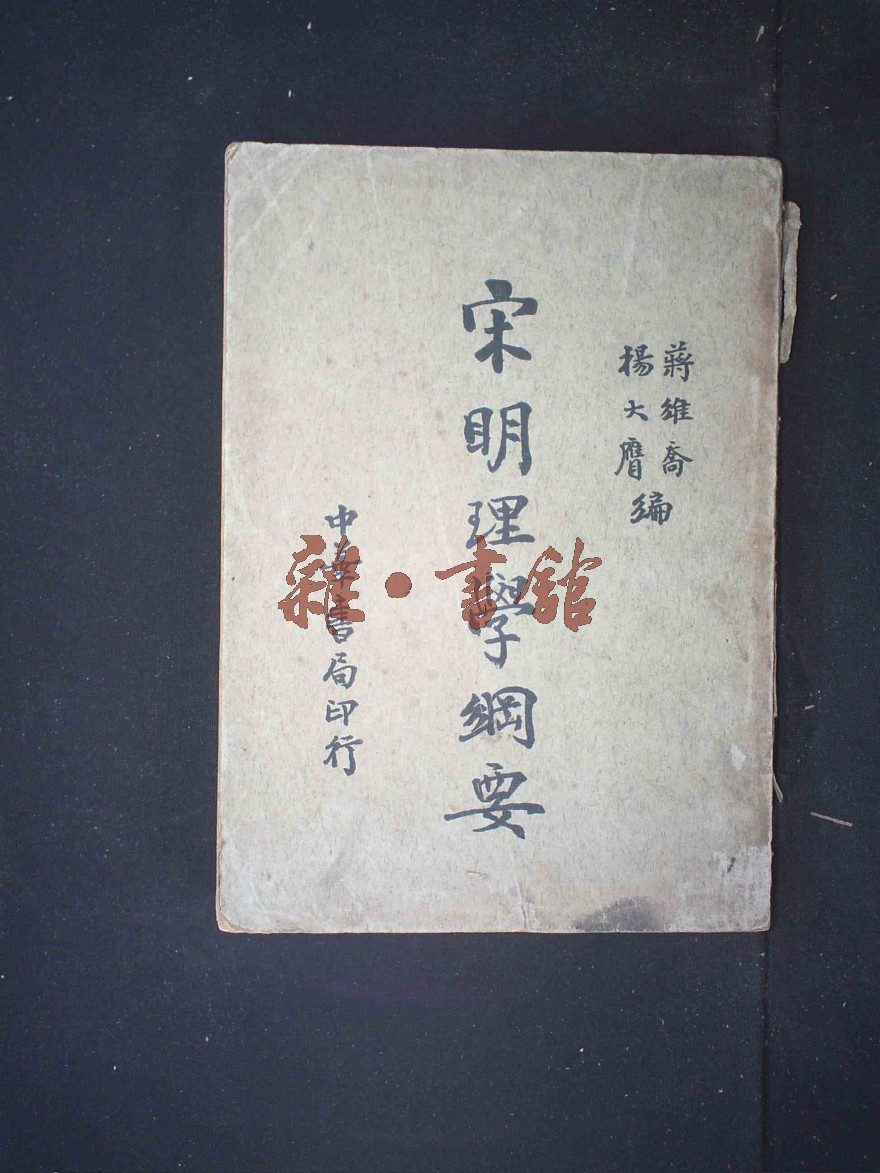 蔣維喬
楊大膺
編
宋明理學綱要
中華書局印行
雜·書館